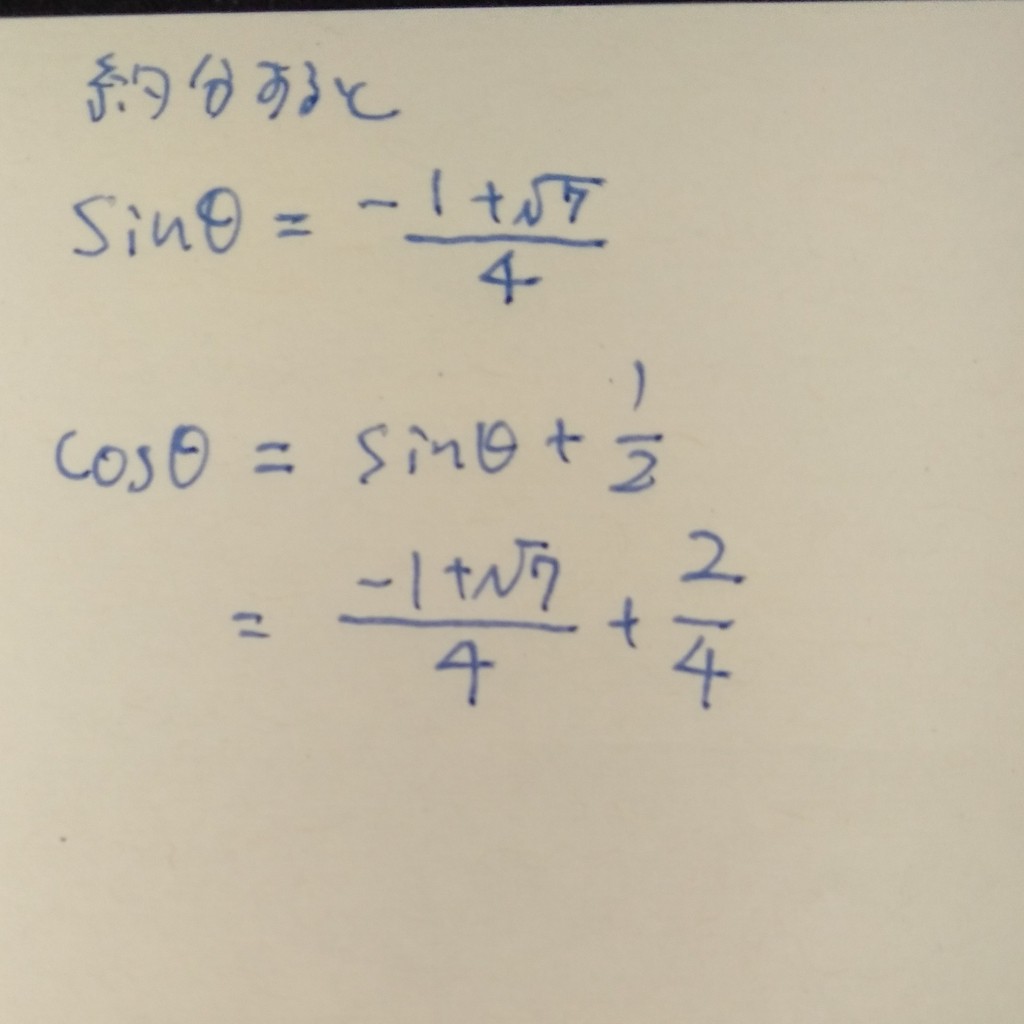 約分すると
sinθ = -1+√7/4
cosθ = sinθ + 1/2
= -1+√7/4 + 2/4